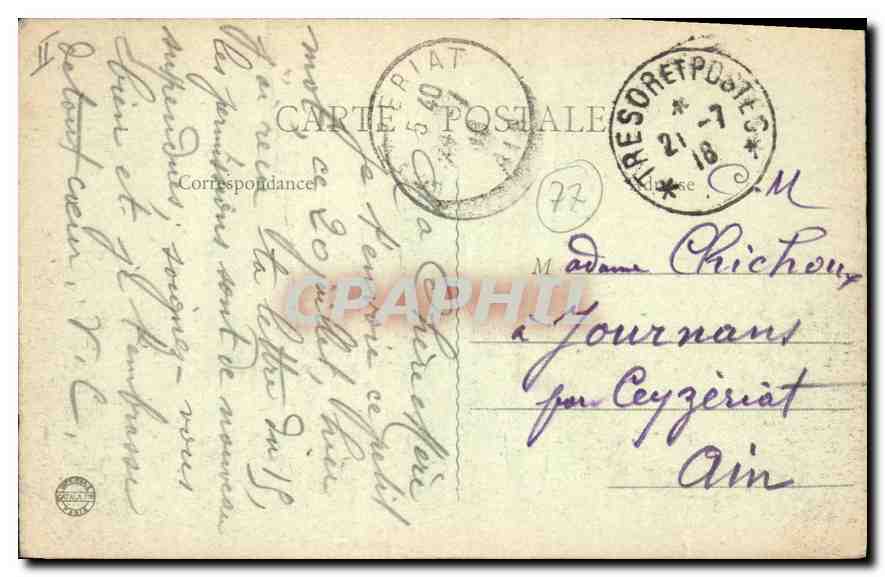 CARTE POSTALE
Correspondance
Adresse
CEYZERIAT
AIN
TRESOR ET POSTES
21 -7
18
77
C-M
Madame Chichoux
à Journans
par Ceyzériat
Ain
Ma Chère Mère
Je t'envoie ce petit
mot, ce 20 juillet, hier
j'ai reçu ta lettre du 15,
les permissions sont de nouveau
suspendues, soignez-vous
bien et je t'embrasse
de tout cœur. V. C.
III
CPAPHIL